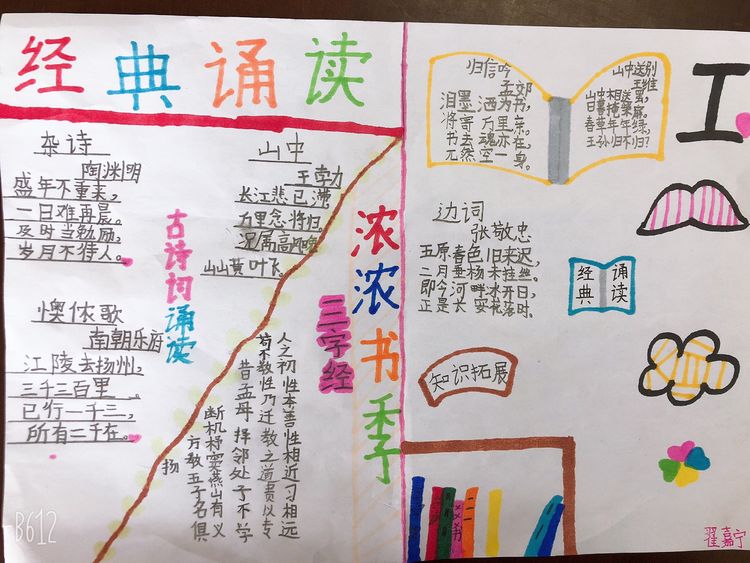 经典诵读
杂诗
陶渊明
盛年不重来，
一日难再晨。
及时当勉励，
岁月不待人。
山中
王勃
长江悲已滞，
万里念将归。
况属高风晚
山山黄叶飞。
古诗词诵读
懊侬歌
南朝乐府
江陵去扬州，
三千三百里。
已行一千三，
所有二千在。
三字经
人之初性本善性相近习相远
苟不教性乃迁教之道贵以专
昔孟母择邻处子不学
断机杼窦燕山有义
方教五子名俱
扬
浓浓书香
归信吟
孟郊
泪墨洒为书，
将寄万里亲。
书去魂亦去
兀然空一身。
山中送别
王维
山中相送罢，
日暮掩柴扉。
春草年年绿，
王孙归不归？
边词
张敬忠
五原春色旧来迟，
二月垂杨未挂丝。
即今河畔冰开日，
正是长安花落时。
经典诵读
知识拓展
工
翟嘉宁
B612